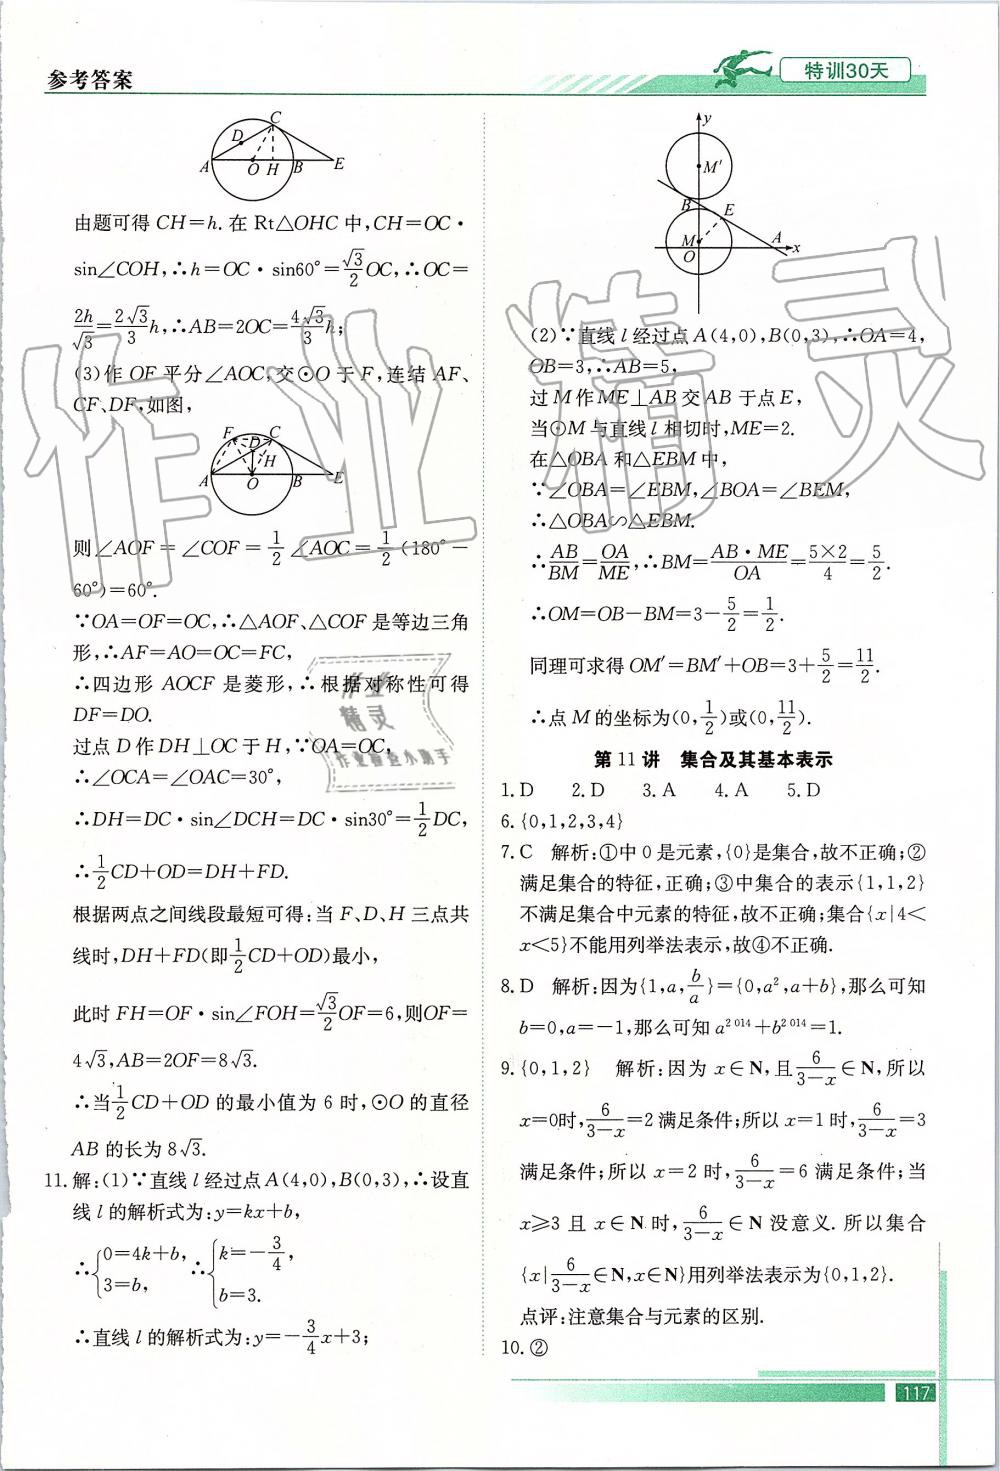 参考答案
特训30天
C
D
A
O H B E
由题可得 CH=h. 在 Rt△OHC 中,CH=OC·
sin∠COH,∴h=OC·sin60°=√3/2 OC,∴OC=
2h/√3=2√3/3 h,∴AB=2OC=4√3/3 h;
(3)作 OF 平分∠AOC,交⊙O 于 F,连结 AF、
CF、DF,如图,
F C
D
H
A O B E
则∠AOF=∠COF=1/2∠AOC=1/2(180°-
60°)=60°.
∵OA=OF=OC,∴△AOF、△COF 是等边三角
形,∴AF=AO=OC=FC,
∴四边形 AOCF 是菱形,∴根据对称性可得
DF=DO.
过点 D 作 DH⊥OC 于 H,∵OA=OC,
∴∠OCA=∠OAC=30°,
∴DH=DC·sin∠DCH=DC·sin30°=1/2 DC,
∴1/2 CD+OD=DH+FD.
根据两点之间线段最短可得:当 F、D、H 三点共
线时,DH+FD(即1/2 CD+OD)最小,
此时 FH=OF·sin∠FOH=√3/2 OF=6,则OF=
4√3,AB=2OF=8√3.
∴当1/2 CD+OD 的最小值为 6 时,⊙O 的直径
AB 的长为 8√3.
11. 解:(1)∵直线 l 经过点 A(4,0),B(0,3),∴设直
线 l 的解析式为:y=kx+b,
∴{0=4k+b, 3=b, ∴{k=-3/4, b=3.
∴直线 l 的解析式为:y=-3/4 x+3;
y
M′
B
E
M
A
O x
(2)∵直线 l 经过点 A(4,0),B(0,3),∴OA=4,
OB=3,∴AB=5,
过 M 作 ME⊥AB 交 AB 于点 E,
当⊙M 与直线 l 相切时,ME=2.
在△OBA 和△EBM 中,
∵∠OBA=∠EBM,∠BOA=∠BEM,
∴△OBA∽△EBM.
∴AB/BM=OA/ME,∴BM=AB·ME/OA=5×2/4=5/2.
∴OM=OB-BM=3-5/2=1/2.
同理可求得 OM′=BM′+OB=3+5/2=11/2.
∴点 M 的坐标为(0,1/2)或(0,11/2).
第 11 讲 集合及其基本表示
1. D 2. D 3. A 4. A 5. D
6. {0,1,2,3,4}
7. C 解析:①中 0 是元素,{0}是集合,故不正确;②
满足集合的特征,正确;③中集合的表示{1,1,2}
不满足集合中元素的特征,故不正确;集合{x|4<
x<5}不能用列举法表示,故④不正确.
8. D 解析:因为{1,a,b/a}={0,a²,a+b},那么可知
b=0,a=-1,那么可知 a²⁰¹⁴+b²⁰¹⁴=1.
9. {0,1,2} 解析:因为 x∈N,且6/(3-x)∈N,所以
x=0时,6/(3-x)=2 满足条件;所以 x=1 时,6/(3-x)=3
满足条件;所以 x=2 时,6/(3-x)=6 满足条件;当
x≥3 且 x∈N 时,6/(3-x)∈N 没意义. 所以集合
{x|6/(3-x)∈N,x∈N}用列举法表示为{0,1,2}.
点评:注意集合与元素的区别.
10. ②
117
作业精灵
作业
精灵
作业检查小助手